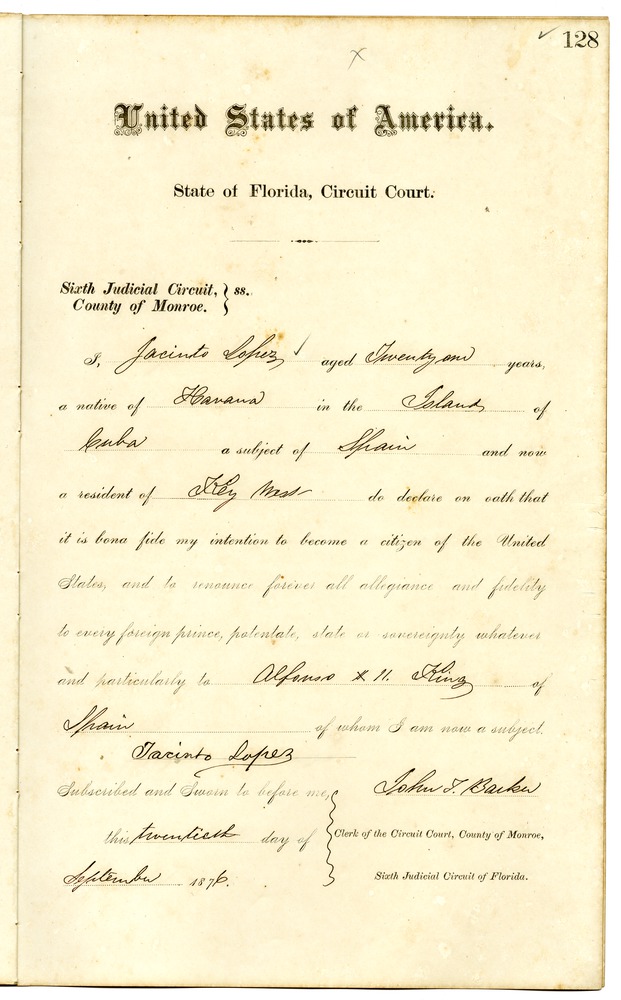 128
United States of America.
State of Florida, Circuit Court.
Sixth Judicial Circuit, } ss.
County of Monroe.
I, Jacinto Lopez aged Twenty one years,
a native of Havana in the Island of
Cuba a subject of Spain and now
a resident of Key West do declare on oath that
it is bona fide my intention to become a citizen of the United
States, and to renounce forever all allegiance and fidelity
to every foreign prince, potentate, state or sovereignty whatever
and particularly to Alfonso X II. King of
Spain of whom I am now a subject.
Jacinto Lopez
Subscribed and Sworn to before me, John T. Barker
this twentieth day of Clerk of the Circuit Court, County of Monroe,
September 1876. Sixth Judicial Circuit of Florida.